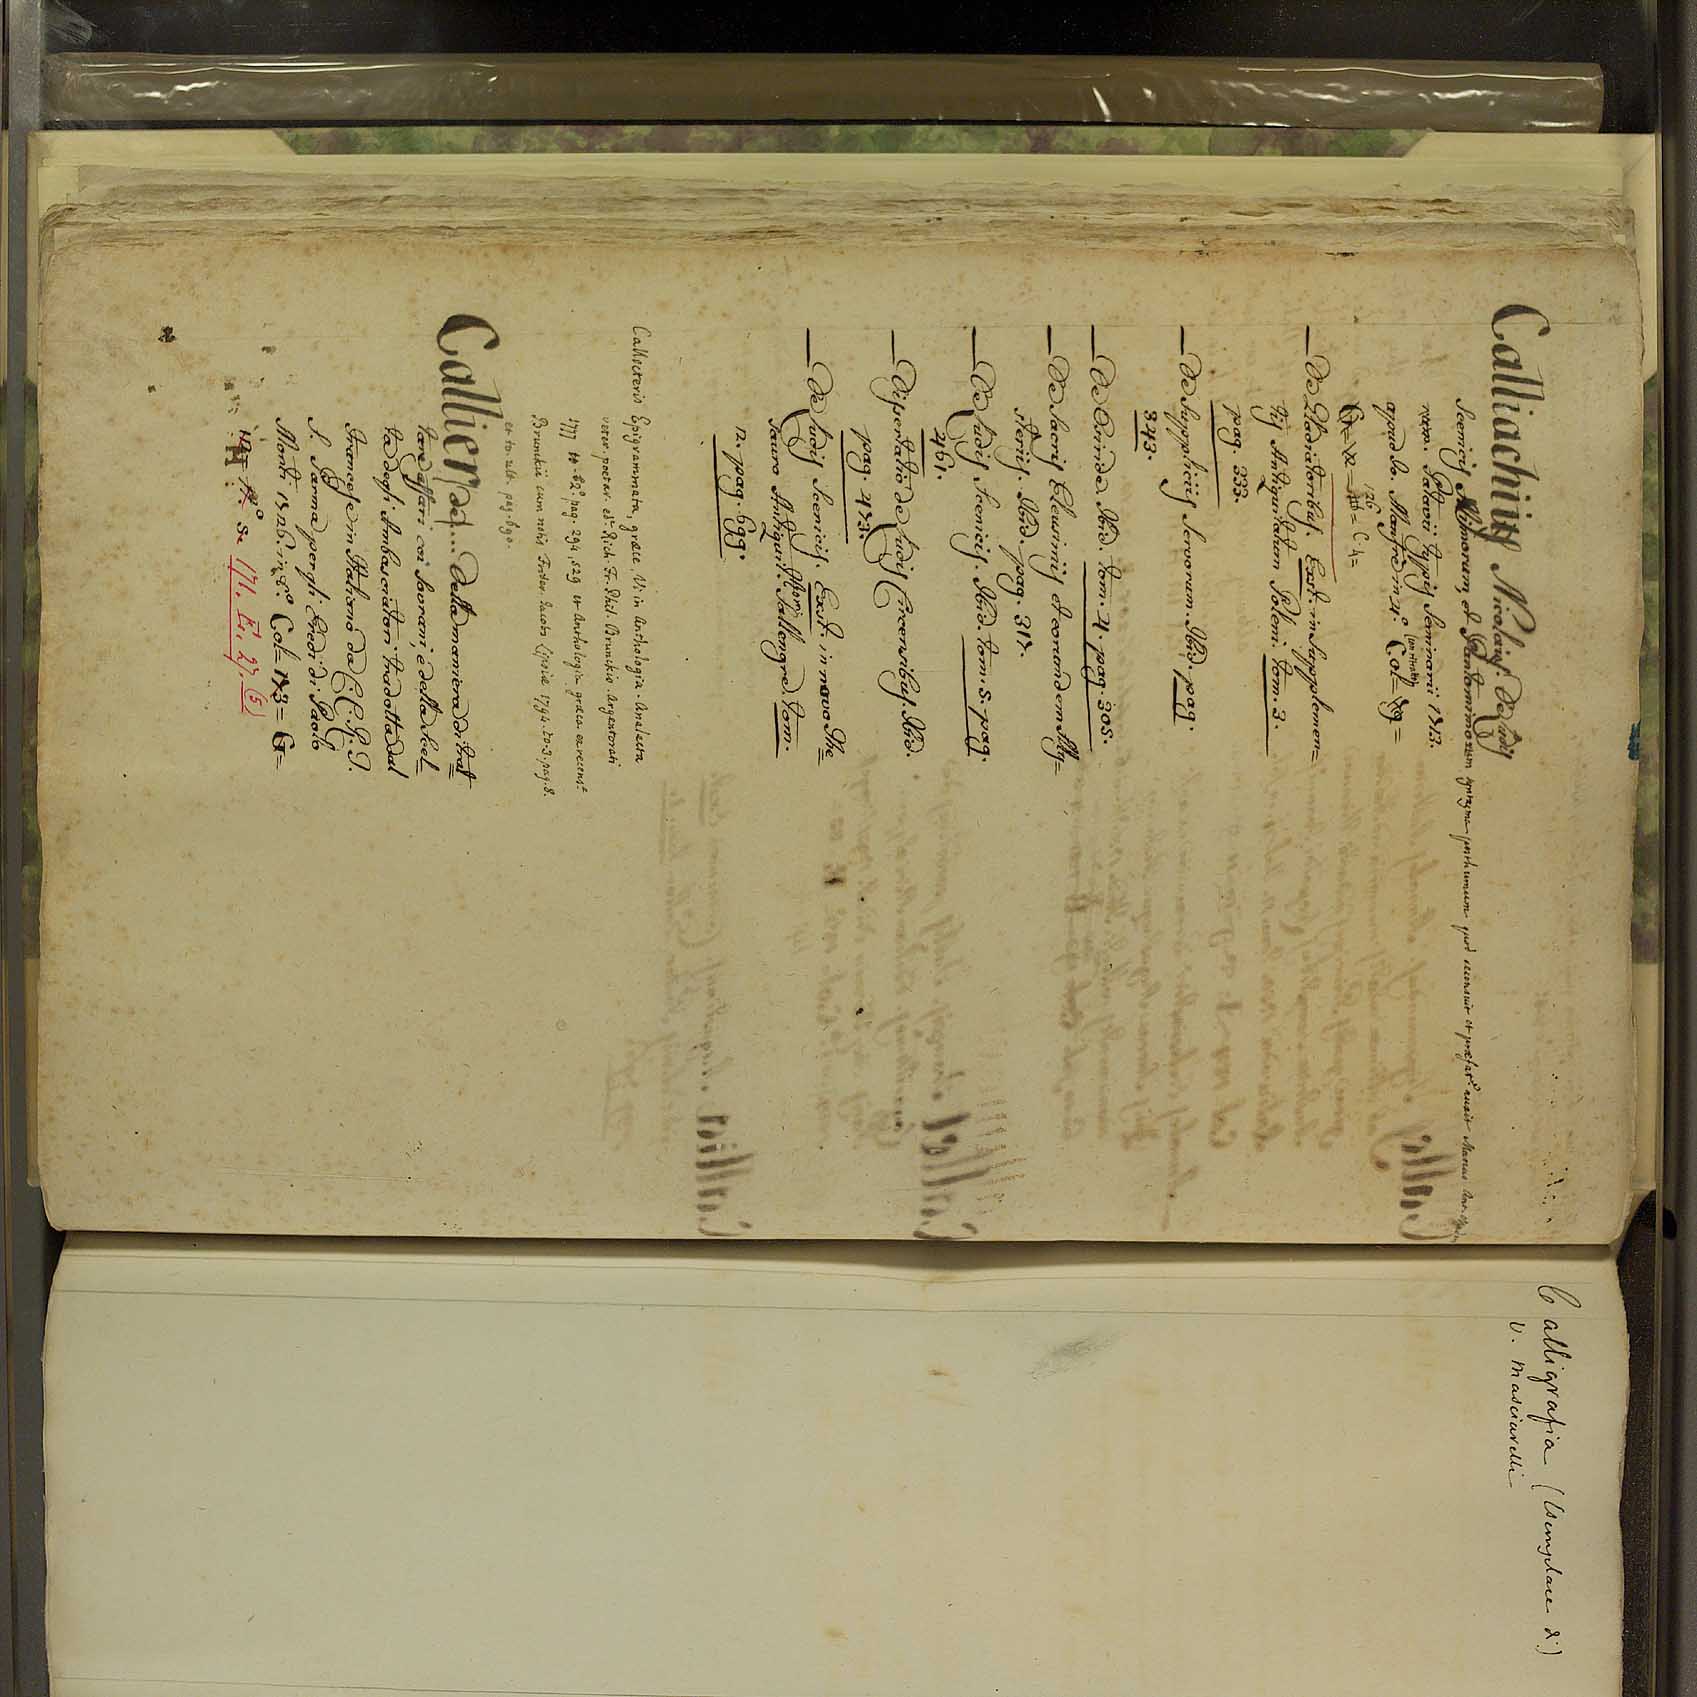 Calliachius Nicolaus. De Ludis
Scenicis Mimorum, et Pantomimorum syntagma posthumum quod recensuit et præfatᵉ auxit Marcus Ant.
Patavii typis Seminarii 1713.
apud Jo. Manfrè in 4.º Col=
G=
— De Gladiatoribus. Exst. in Supplemen=
tis Antiquitatum Poleni. tom. 3.
pag. 333.
— De Suppliciis Servorum. Ibid. pag.
343.
— De Osiride. Ibid. tom. 4. pag. 305.
— De Sacris Eleusiniis et eorundem My=
steriis. Ibid. pag. 317.
— De Ludis Scenicis. Ibid. tom. 5. pag.
461.
— Dissertatio de Ludis Circensibus. Ibid.
pag. 473.
— De Ludis Scenicis. Exst. in novo The
sauro Antiquit. Sallengre. tom.
2. pag. 699.
Callicteris Epigrammata, græce. V. in Anthologia. Analecta
veter. poetar. edᵗ. Rich. Fr. Phil. Brunckio. Argentorati
1777 to. 2º pag. 294, 529 et Anthologia græca ex recensᵉ
Brunckii cum notis Freder. Jacobs Lipsiæ 1794. to. 3. pag. 8.
et to. ult. pag. 690.
Callier, de... Della maniera di trat
tare affari coi Sovrani, e della Scel=
ta degli Ambasciatori tradotta dal
Francese in Italiano da C. F. G. T.
S. Parma per gli Eredi di Paolo
Monti 1726. in 8.º Col= 173= G=
Calligrafia (Esemplare di)
v. Masciarelli